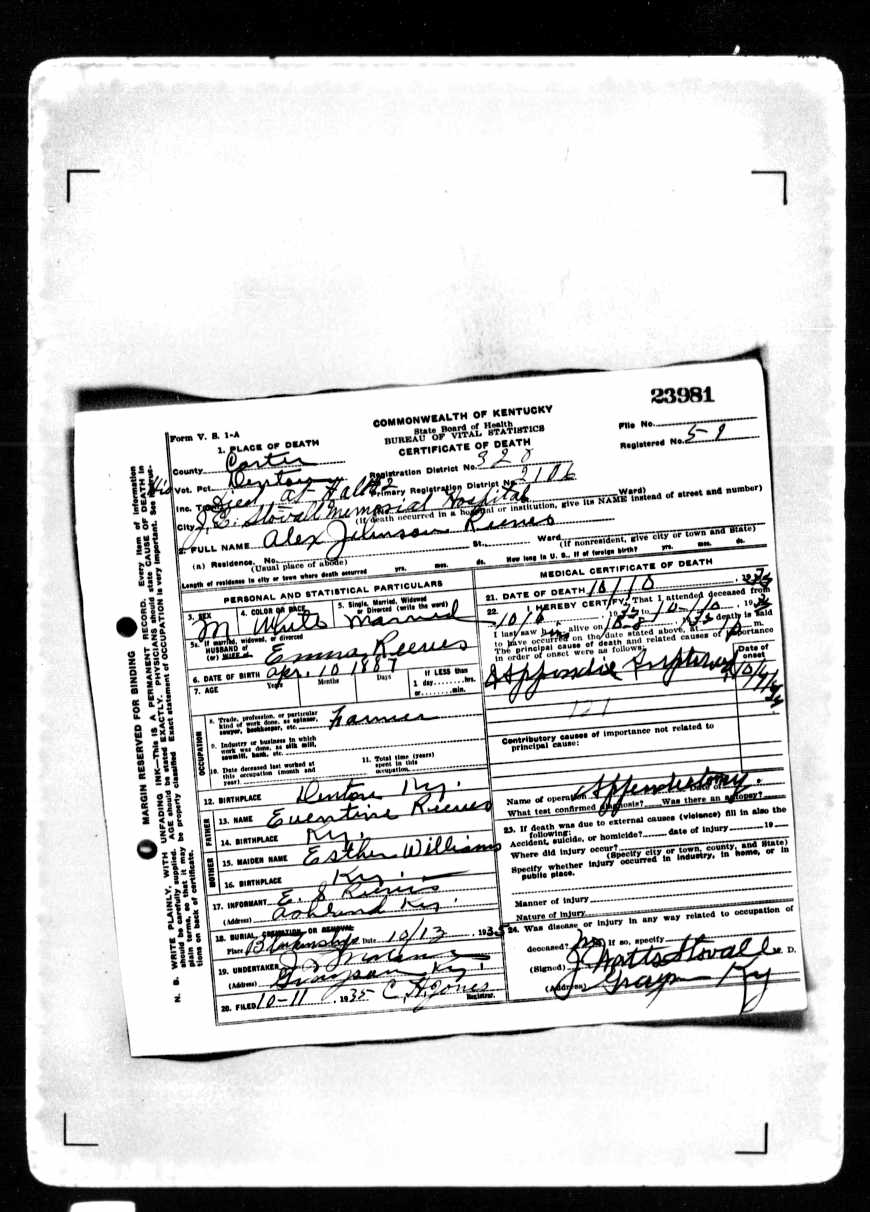 23981
COMMONWEALTH OF KENTUCKY
State Board of Health
BUREAU OF VITAL STATISTICS
CERTIFICATE OF DEATH
Form V. S. 1-A
File No.
Registered No. 59
1. PLACE OF DEATH
County Carter
Registration District No. 328
Vot. Pct. Denton
Primary Registration District No. 2106
Inc. T Died at
City J. E. Stovall Memorial Hospital Ward)
(If death occurred in a hospital or institution, give its NAME instead of street and number)
2. FULL NAME Alex Johnson Reeves
(a) Residence. No. St., Ward
(Usual place of abode) (If nonresident, give city or town and State)
Length of residence in city or town where death occurred yrs. mos. ds. How long in U. S., if of foreign birth? yrs. mos. ds.
PERSONAL AND STATISTICAL PARTICULARS
3. SEX M
4. COLOR OR RACE White
5. Single, Married, Widowed or Divorced (write the word) Married
5a. If married, widowed, or divorced
HUSBAND of
(or) WIFE of Emma Reeves
6. DATE OF BIRTH Apr. 10 1887
7. AGE Years Months Days If LESS than
1 day hrs.
or min.
OCCUPATION
8. Trade, profession, or particular
kind of work done, as spinner,
sawyer, bookkeeper, etc. Farmer
9. Industry or business in which
work was done, as silk mill,
sawmill, bank, etc.
10. Date deceased last worked at
this occupation (month and
year)
11. Total time (years)
spent in this
occupation
12. BIRTHPLACE Denton Ky.
FATHER
13. NAME Reeves
14. BIRTHPLACE Ky.
MOTHER
15. MAIDEN NAME Esther Williams
16. BIRTHPLACE Ky.
17. INFORMANT E. S. Reeves
(Address) Ashland Ky.
18. BURIAL, CREMATION, OR REMOVAL
Place Date 10/13, 1935
19. UNDERTAKER
(Address) Grayson Ky
20. FILED 10-11, 1935 C. H. Jones
Registrar.
MEDICAL CERTIFICATE OF DEATH
21. DATE OF DEATH 10/10, 1935
22. I HEREBY CERTIFY, That I attended deceased from
10/6, 1935 to 10-10, 1935
I last saw him alive on death is said
to have occurred on the date stated above, at m.
The principal cause of death and related causes of importance
in order of onset were as follows:
Date of
onset
Appendix Ruptured
121
Contributory causes of importance not related to
principal cause:
Name of operation Appendectomy.
What test confirmed diagnosis? Was there an autopsy?
23. If death was due to external causes (violence) fill in also the
following:
Accident, suicide, or homicide? date of injury 19
Where did injury occur?
(Specify city or town, county, and State)
Specify whether injury occurred in industry, in home, or in
public place.
Manner of injury
Nature of injury
24. Was disease or injury in any way related to occupation of
deceased? No If so, specify
(Signed) J Watts Stovall M. D.
(Address) Grayson Ky
MARGIN RESERVED FOR BINDING
N. B. WRITE PLAINLY, WITH UNFADING INK—THIS IS A PERMANENT RECORD. Every item of information
should be carefully supplied. AGE should be stated EXACTLY. PHYSICIANS should state CAUSE OF DEATH in
plain terms, so that it may be properly classified. Exact statement of OCCUPATION is very important. See
tions on back of certificate.